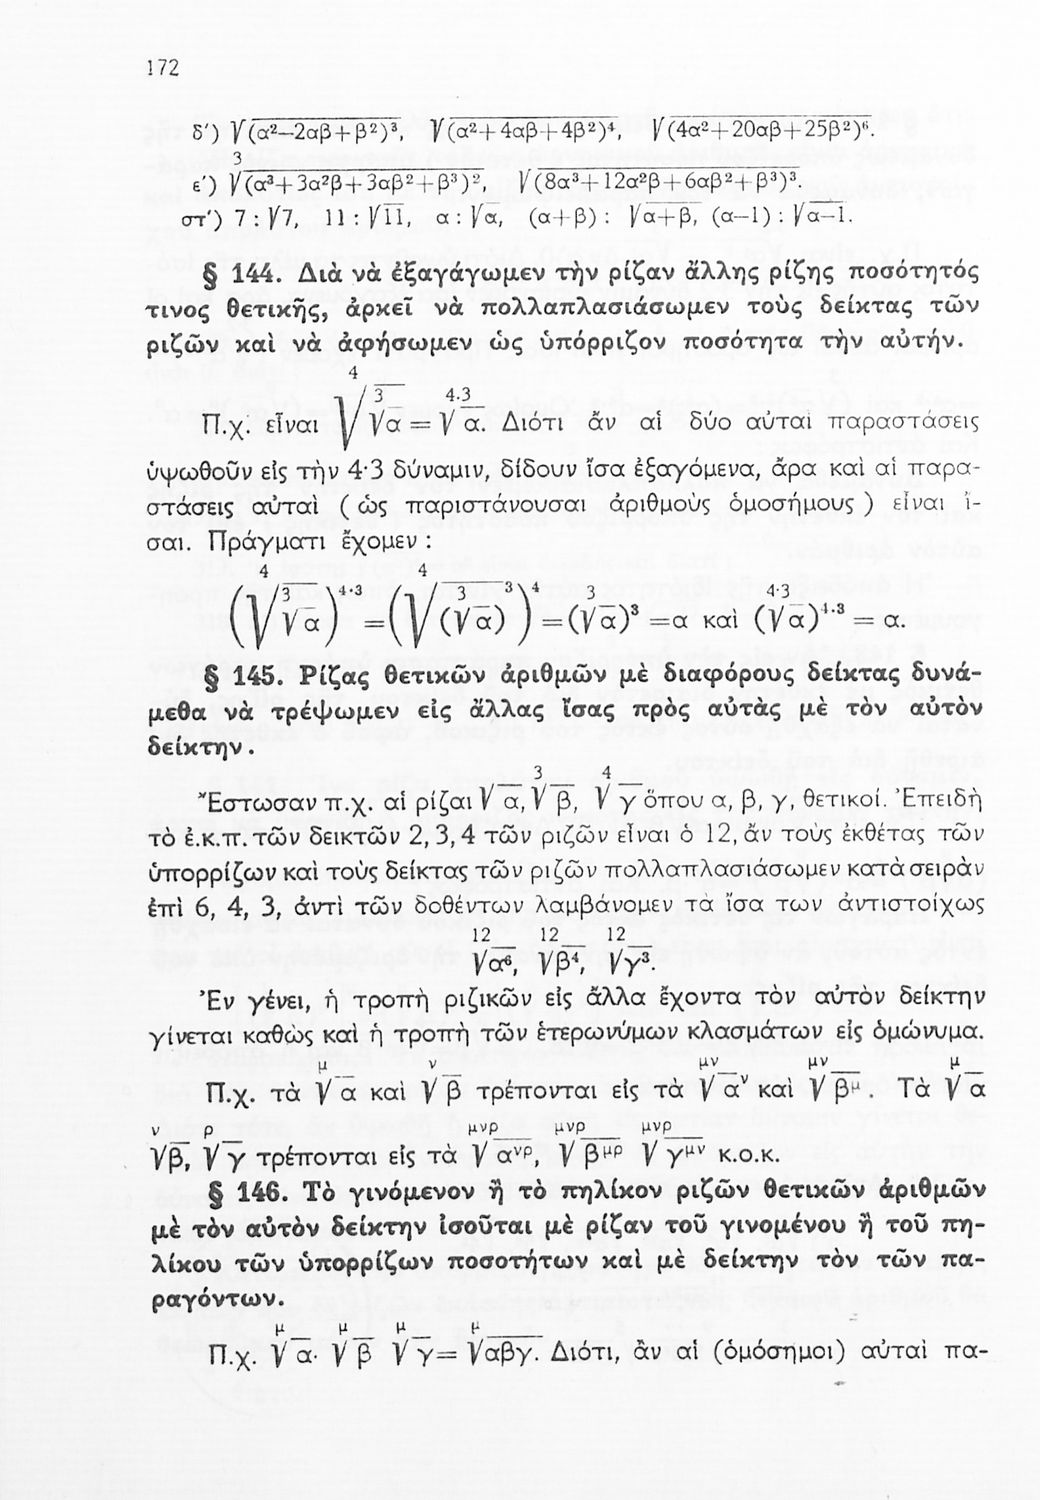 172
δ′) √(α²−2αβ+β²)³, √(α²+4αβ+4β²)⁴, √(4α²+20αβ+25β²)⁶.
ε′) ³√(α³+3α²β+3αβ²+β³)², √(8α³+12α²β+6αβ²+β³)³.
στ′) 7 : √7, 11 : √11, α : √α, (α+β) : √α+β, (α−1) : √α−1.
§ 144. Διὰ νὰ ἐξαγάγωμεν τὴν ρίζαν ἄλλης ρίζης ποσότητός
τινος θετικῆς, ἀρκεῖ νὰ πολλαπλασιάσωμεν τοὺς δείκτας τῶν
ριζῶν καὶ νὰ ἀφήσωμεν ὡς ὑπόρριζον ποσότητα τὴν αὐτήν.
Π.χ. εἶναι ⁴√³√α = ⁴·³√α. Διότι ἄν αἱ δύο αὐταὶ παραστάσεις
ὑψωθοῦν εἰς τὴν 4·3 δύναμιν, δίδουν ἴσα ἐξαγόμενα, ἄρα καὶ αἱ παρα-
στάσεις αὐταὶ ( ὡς παριστάνουσαι ἀριθμοὺς ὁμοσήμους ) εἶναι ἴ-
σαι. Πράγματι ἔχομεν :
(⁴√³√α)⁴·³ = (⁴√(³√α)³)⁴ = (³√α)³ = α καὶ (⁴·³√α)⁴·³ = α.
§ 145. Ρίζας θετικῶν ἀριθμῶν μὲ διαφόρους δείκτας δυνά-
μεθα νὰ τρέψωμεν εἰς ἄλλας ἴσας πρὸς αὐτὰς μὲ τὸν αὐτὸν
δείκτην.
Ἔστωσαν π.χ. αἱ ρίζαι √α, ³√β, ⁴√γ ὅπου α, β, γ, θετικοί. Ἐπειδὴ
τὸ ἐ.κ.π. τῶν δεικτῶν 2, 3, 4 τῶν ριζῶν εἶναι ὁ 12, ἄν τοὺς ἐκθέτας τῶν
ὑπορρίζων καὶ τοὺς δείκτας τῶν ριζῶν πολλαπλασιάσωμεν κατὰ σειρὰν
ἐπὶ 6, 4, 3, ἀντὶ τῶν δοθέντων λαμβάνομεν τὰ ἴσα των ἀντιστοίχως
¹²√α⁶, ¹²√β⁴, ¹²√γ³.
Ἐν γένει, ἡ τροπὴ ριζικῶν εἰς ἄλλα ἔχοντα τὸν αὐτὸν δείκτην
γίνεται καθὼς καὶ ἡ τροπὴ τῶν ἑτερωνύμων κλασμάτων εἰς ὁμώνυμα.
Π.χ. τὰ μ√α καὶ ν√β τρέπονται εἰς τὰ μν√αν καὶ μν√βμ. Τὰ μ√α
ν√β, ρ√γ τρέπονται εἰς τὰ μνρ√ανρ, μνρ√βμρ μνρ√γμν κ.ο.κ.
§ 146. Τὸ γινόμενον ἢ τὸ πηλίκον ριζῶν θετικῶν ἀριθμῶν
μὲ τὸν αὐτὸν δείκτην ἰσοῦται μὲ ρίζαν τοῦ γινομένου ἢ τοῦ πη-
λίκου τῶν ὑπορρίζων ποσοτήτων καὶ μὲ δείκτην τὸν τῶν πα-
ραγόντων.
Π.χ. μ√α· μ√β μ√γ = μ√αβγ. Διότι, ἂν αἱ (ὁμόσημοι) αὐταὶ πα-